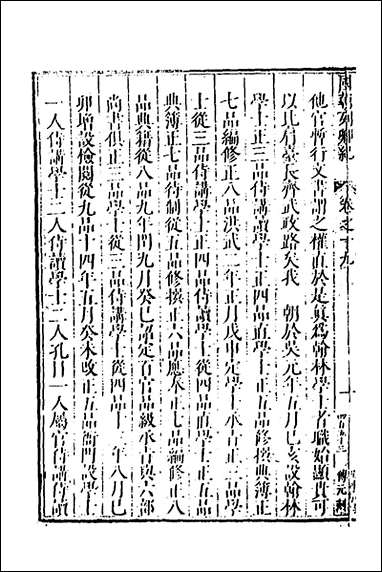 國朝列卿紀 卷之十九 一
他官暫行文書謂之權直於是眞爲翰林學士者職始顯貴可
以比肩臺長齊武政路矣我 朝於吳元年五月己亥設翰林
學士正三品侍講學士正四品直學士正五品修撰典簿正
七品編修正八品洪武二年正月戊申定學士承旨正三品學
士從三品侍講學士正四品侍讀學士從四品直學士正五品
典簿正七品待制從五品修撰正六品應奉正七品編修正八
品典籍從八品九年閏九月癸巳詔定百官品級承旨與六部
尚書俱正三品學士從三品侍講學士從四品十三年八月己
卯增設檢閱從九品十四年五月癸未改正五品衙門設學士
一人侍講學士二人侍讀學士二人孔目一人屬官侍講侍讀